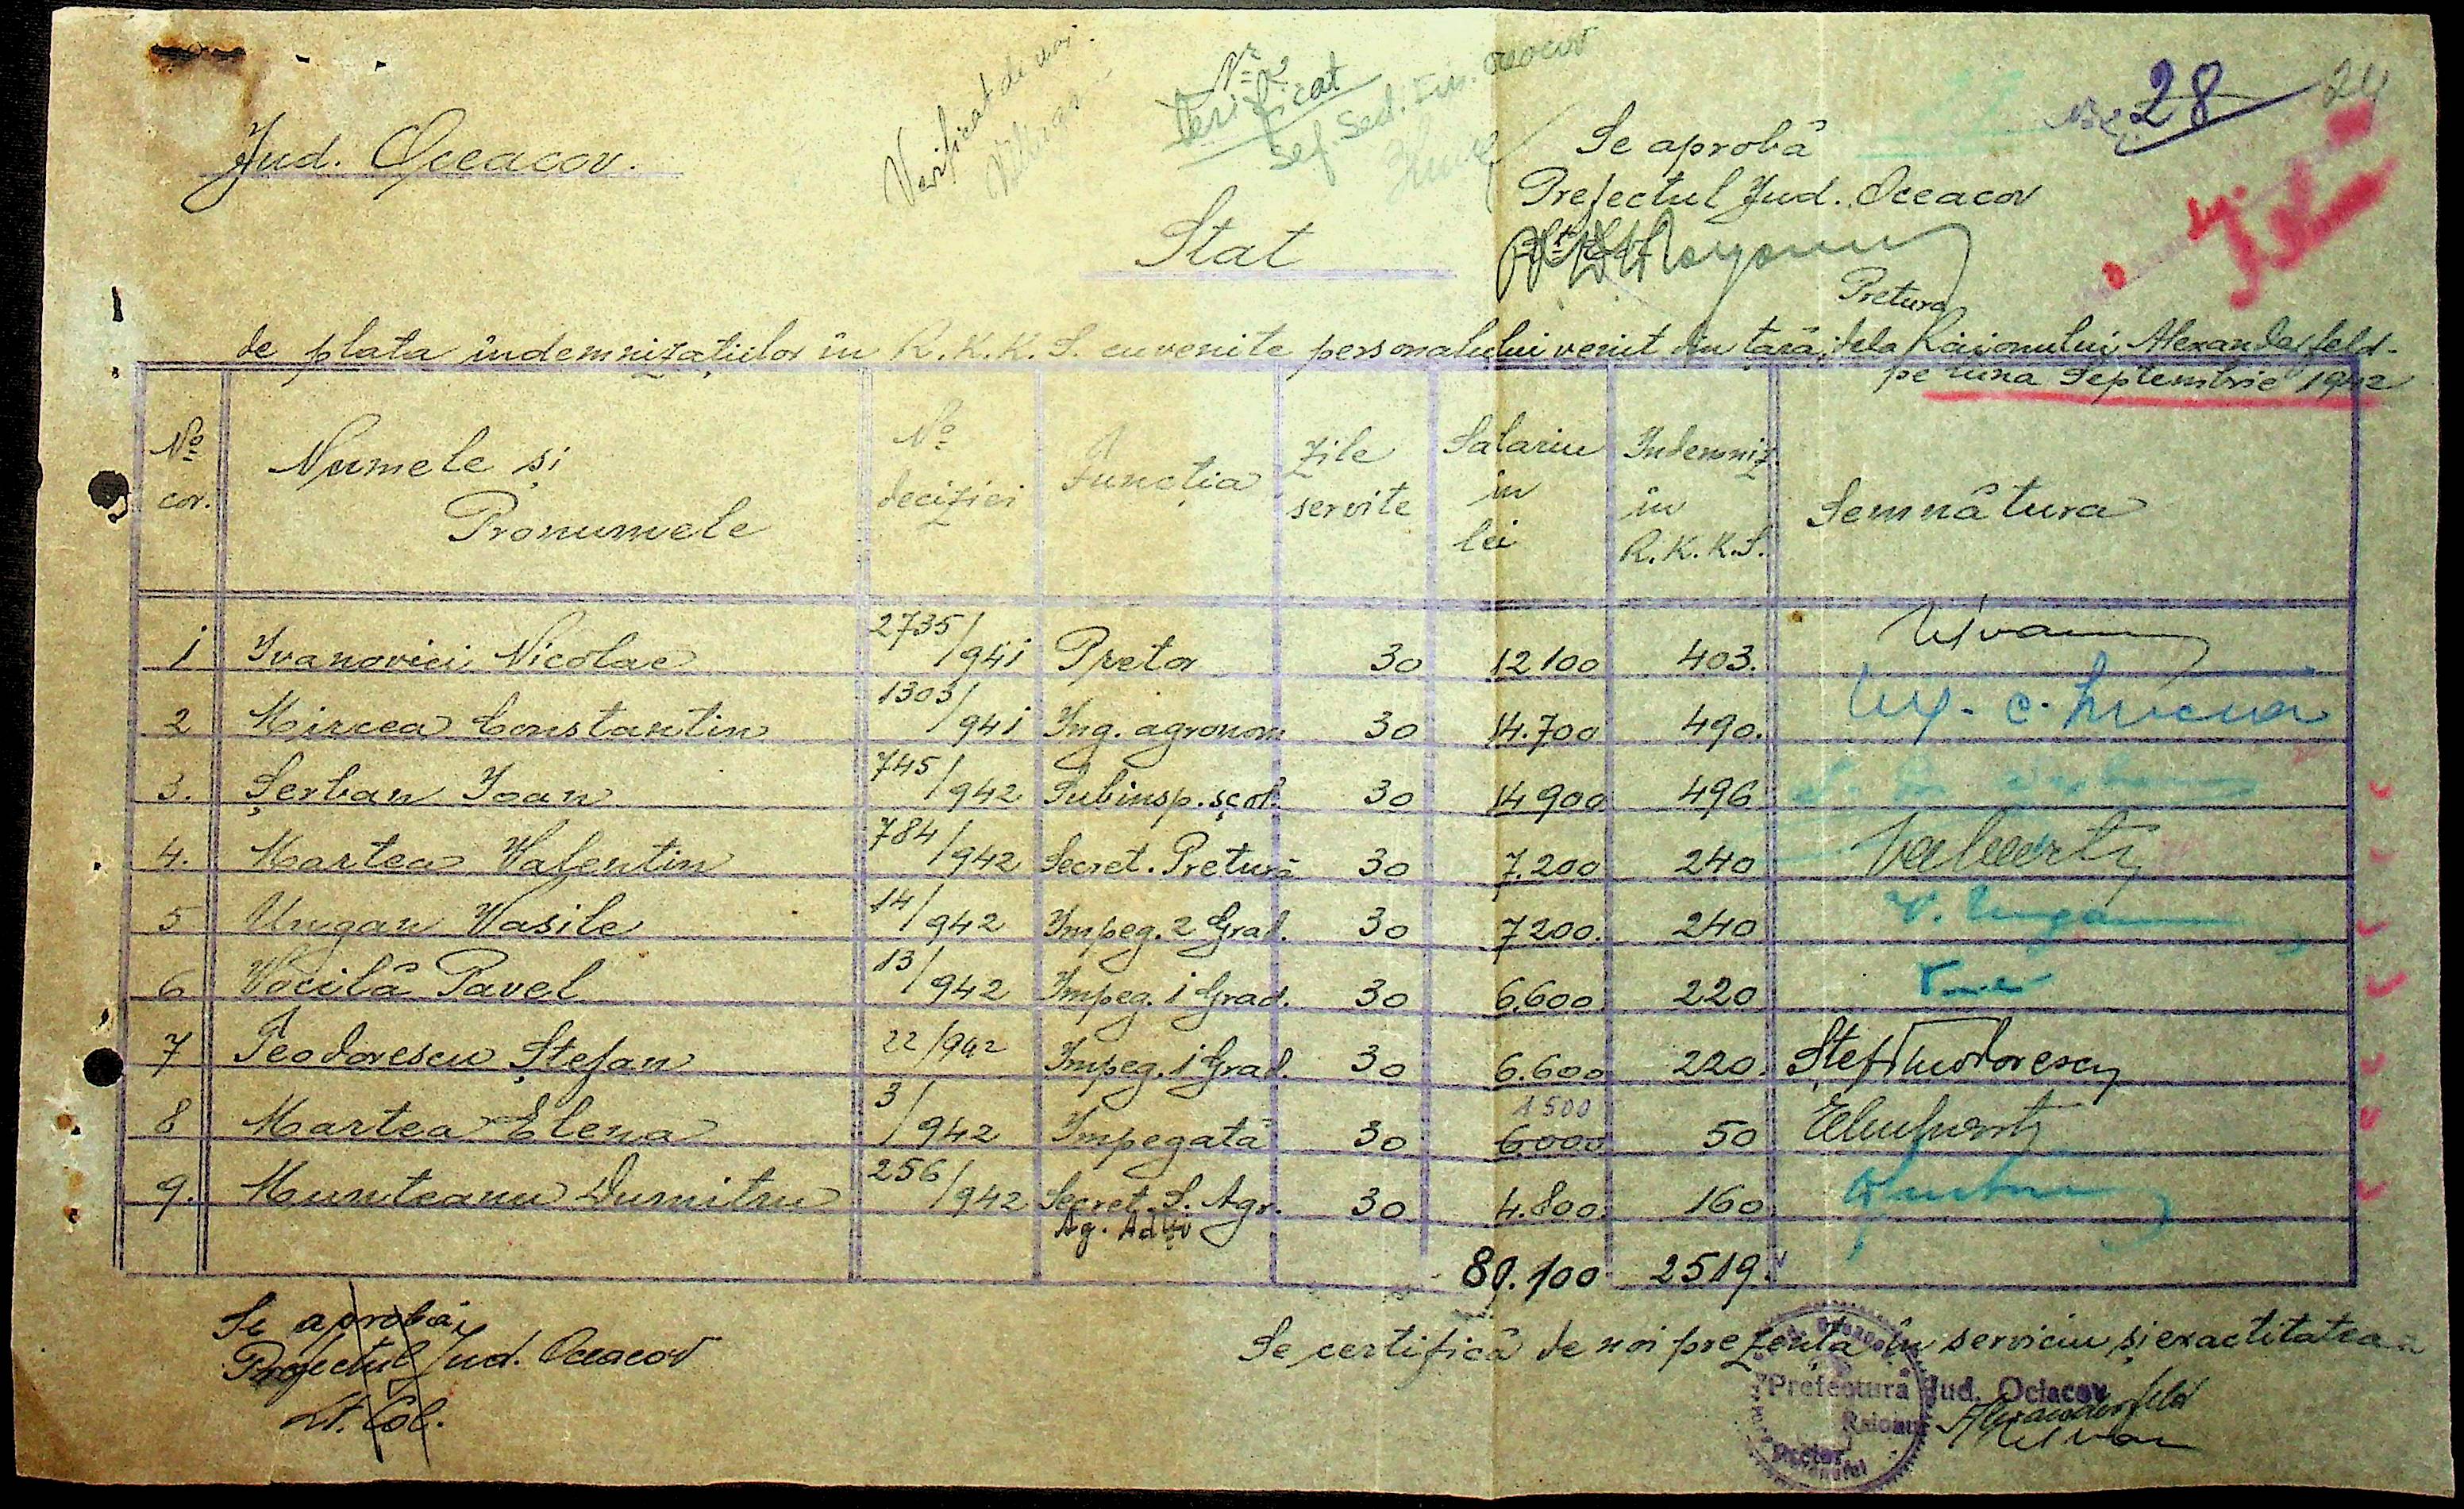 28
24
Jud. Oceacov.
Verificat de noi.
Nr 2
Verificat
Șef. Sed. Fin. Oceacov
Se aprobă
Prefectul Jud. Oceacov
Stat
Pretura
de plata indemnizațiilor în R.K.K.S. cuvenite personalului venit din țară, dela Raionului Alexanderfeld-
pe luna Septembrie 1942
No cor. Numele și Pronumele No deciziei Funcția Zile servite Salariu in lei Indemniz. în R.K.K.S. Semnătura
1 Ivanovici Nicolae 2735/941 Pretor 30 12100 403.
2 Mircea Constantin 1303/941 Ing. agronom 30 14.700 490.
3. Șerban Ioan 745/942 Subinsp. școl. 30 14900 496
4. Martea Valentin 784/942 Secret. Pretură 30 7.200 240
5 Ungan Vasile 14/942 Impeg. 2 Grad. 30 7200. 240 V. Ungan
6 Vocilă Pavel 13/942 Impeg. 1 Grad. 30 6.600 220
7 Teodorescu Ștefan 22/942 Impeg. 1 Grad. 30 6.600 220. Ștef Theodorescu
8 Martea Elena 3/942 Impegată 30 1500 6000 50
9. Munteanu Dumitru 256/942 Secret. S. Agr. 30 4.800. 160
Ag. Adtiv
80.100 2519.
Se aprobă,
Prefectul Jud. Oceacov
Lt. Col.
Se certifică de noi prezența în serviciu și exactitatea
Prefectura Jud. Ociacov
Raionul Alexanderfeld
Pretor,